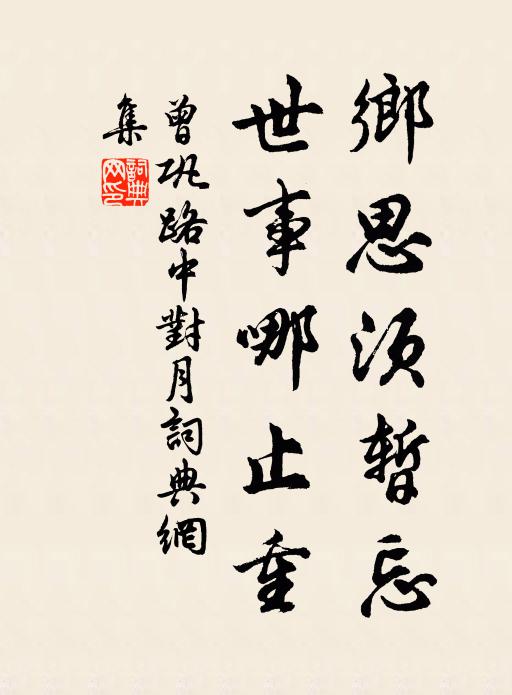 鄉思須暫忘
世事哪止重
曾巩路中對月詞典網
集
詞典
网印